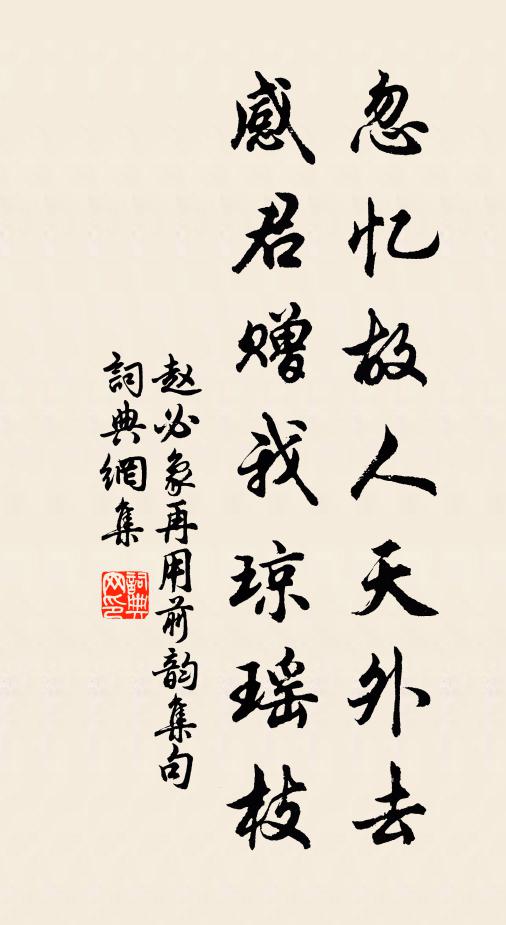 忽忆故人天外去
感君赠我琼瑶枝
赵必象再用前韵集句
詞典網集
詞典网印